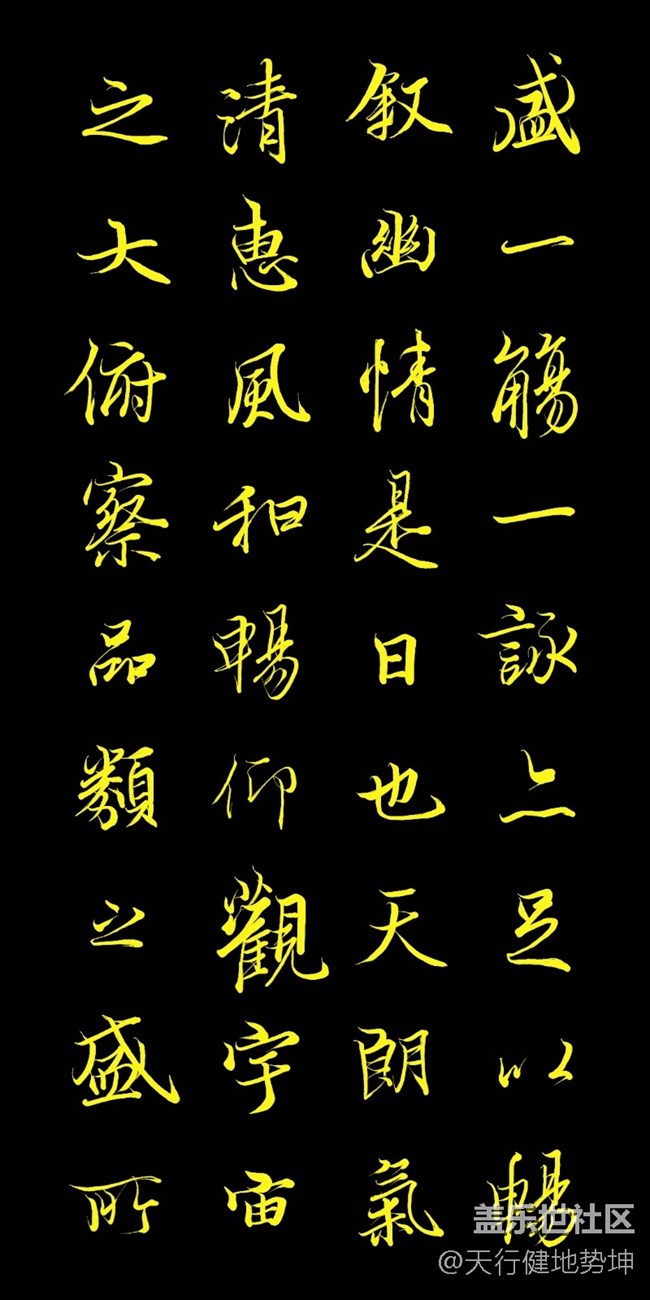 盛一觴一詠亦足以暢
叙幽情是日也天朗氣
清惠風和暢仰觀宇宙
之大俯察品類之盛所
盖乐世社区
@天行健地势坤